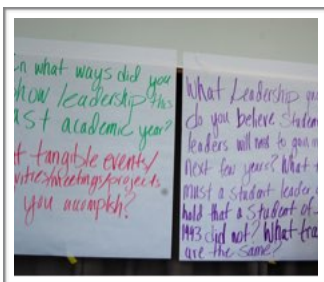 In what ways did you
show leadership this
ast academic year?
t tangible events/
vities/meetings/projects
you accomplish?
What Leadership
do you believe Student
leaders will need to
next few years? What
must a student leader
hold that a student of
1993 did not? What tra
are the same?